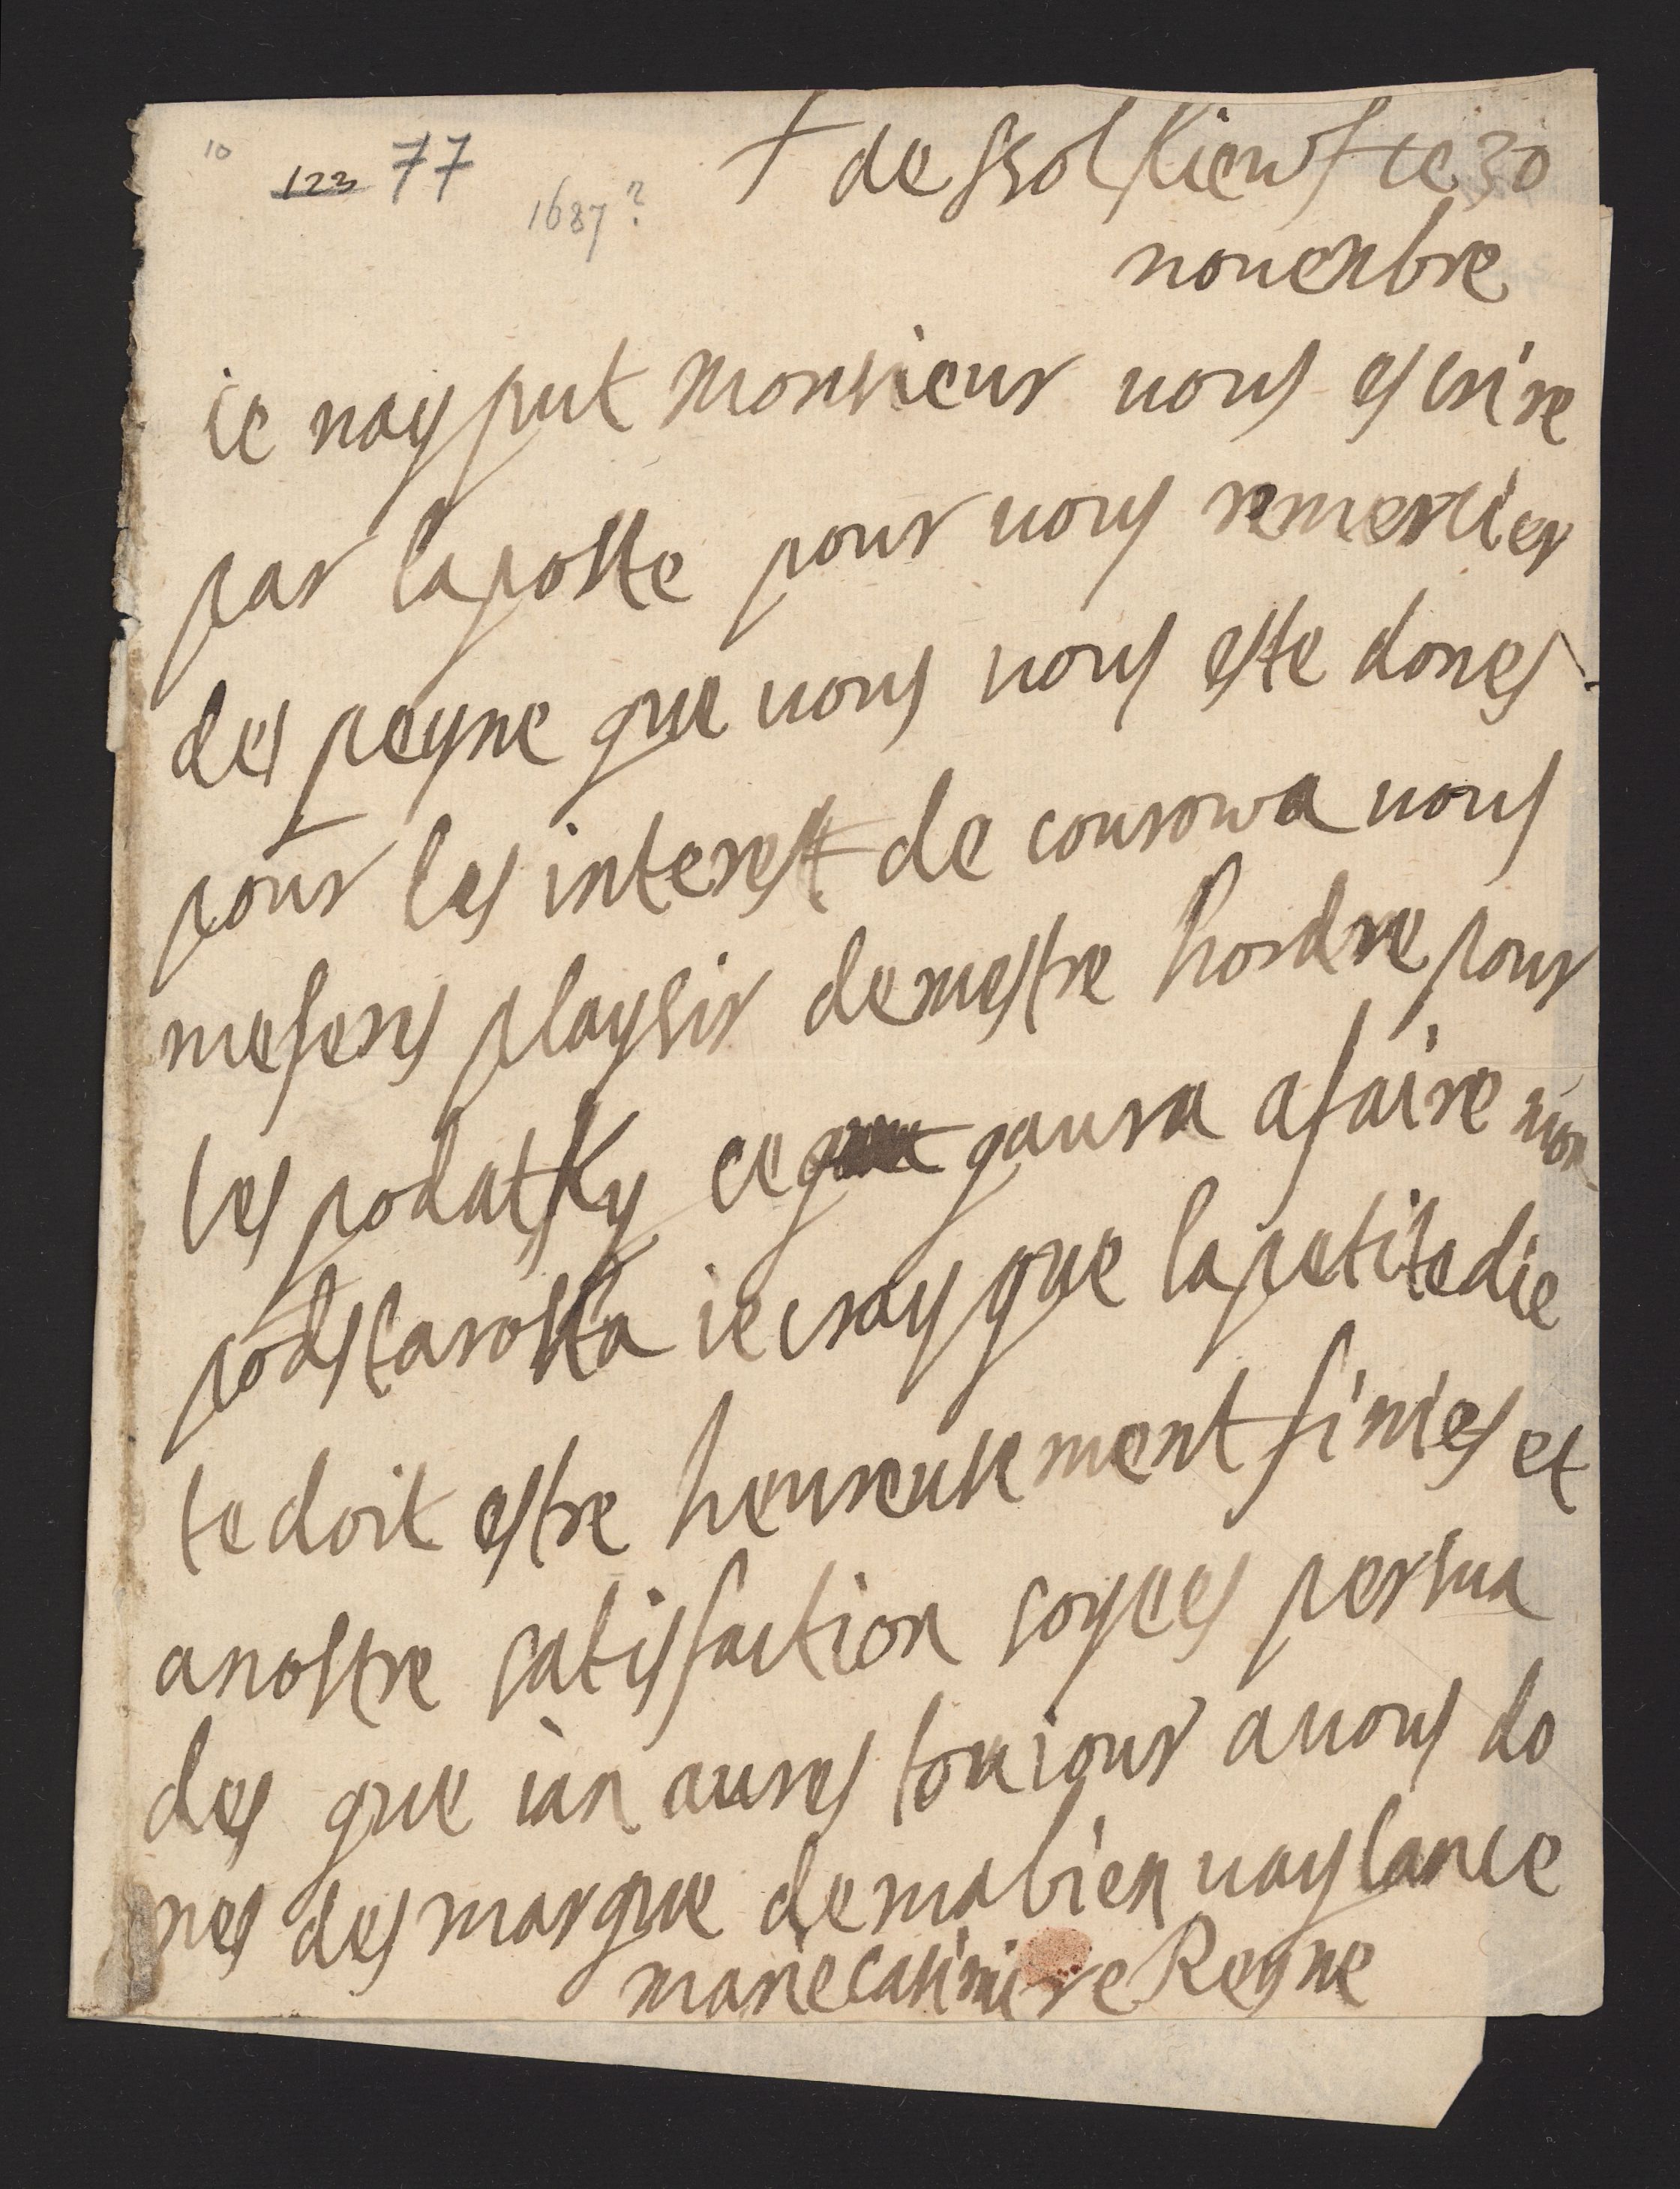 10 123 77 † de ssolkiewf ce 30
1687?
nouenbre
ie nay put monsieur uous escrire
par la poste pour uous remercier
des peyne que uous uous este dones
pour les interest de courowa uous
me feres playsir de mestre hordre pour
les podatsky ce quaura a faire mon
podstarosta ie cray que la petite die
te doit estre heureusement finies et
a nostre satisfaction soyees persua
des que ian aures touiour a uous do
nes des marque de ma bien uaylance
marie casimire Reyne